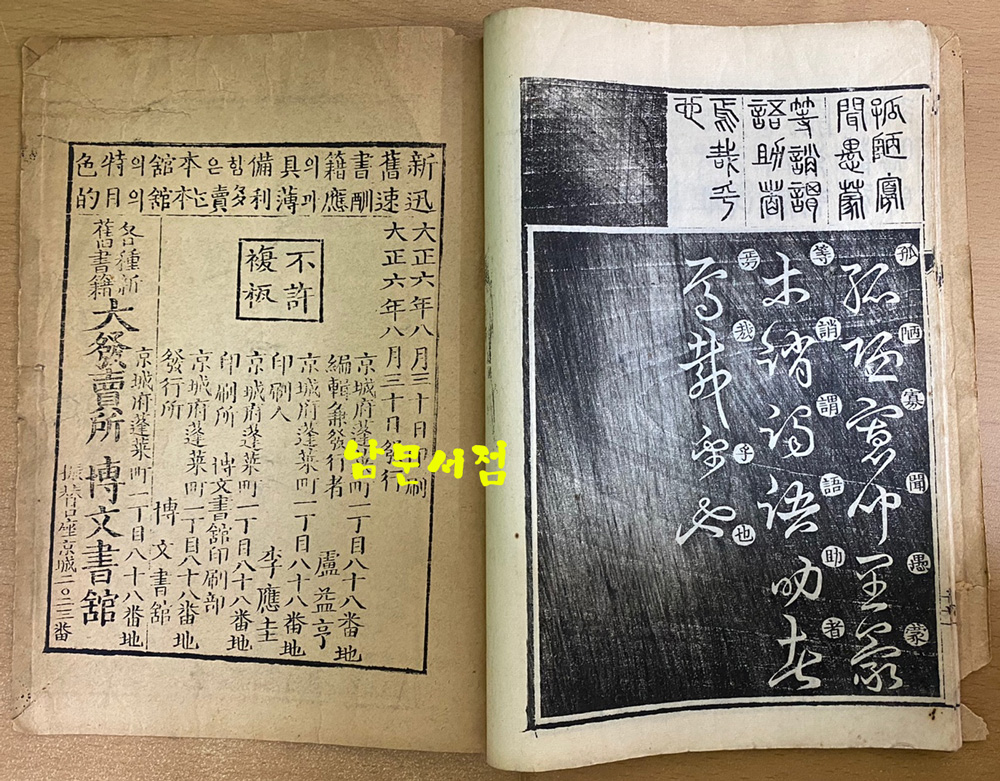 孤陋寡
聞愚蒙
等誚謂
語助者
焉哉乎
也
孤陋寡聞愚蒙
孤陋寡聞愚蒙
等誚謂語助者
等誚謂語助者
焉哉乎也
焉哉乎也
新舊書籍의具備힘은本舘의特色
迅速酬應과薄利多賣는本舘의目的
大正六年八月三十日印刷
大正六年八月三十日發行
不許
複板
京城府蓬萊町一丁目八十八番地
編輯兼發行者 盧益亨
京城府蓬萊町一丁目八十八番地
印刷人 李應圭
京城府蓬萊町一丁目八十八番地
印刷所 博文書舘印刷部
京城府蓬萊町一丁目八十八番地
發行所 博文書舘
京城府蓬萊町一丁目八十八番地
各種新
舊書籍
大發賣所 博文書舘
振替口座京城二〇二三番
남문서점